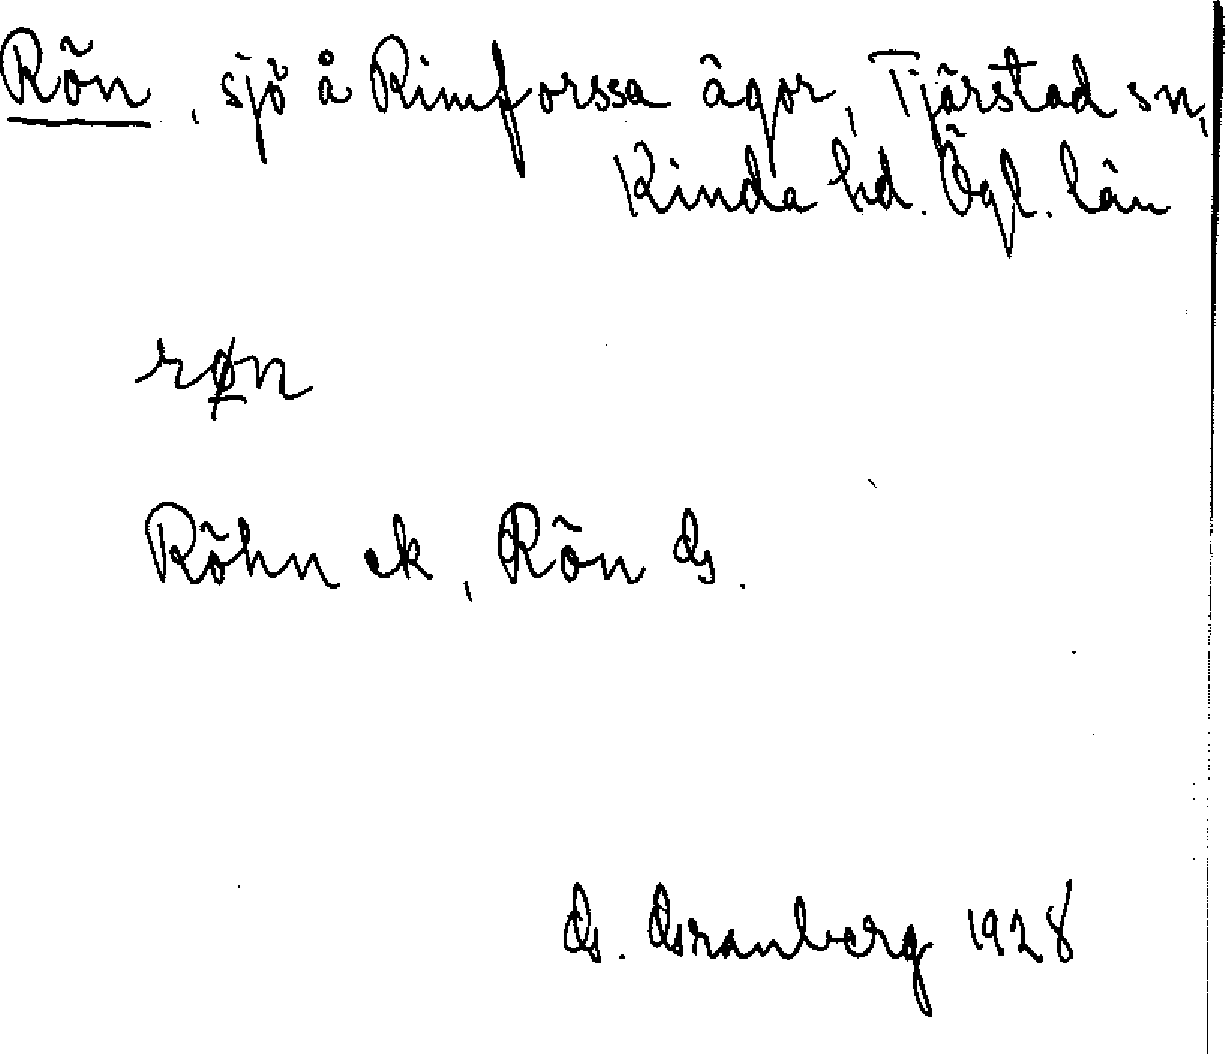 Rön, sjö å Rimforssa ägor, Tjärstad sn,
Kinda hd. Ögl. län
røn
Röhn ek, Rön Gs.
G. Granberg 1928